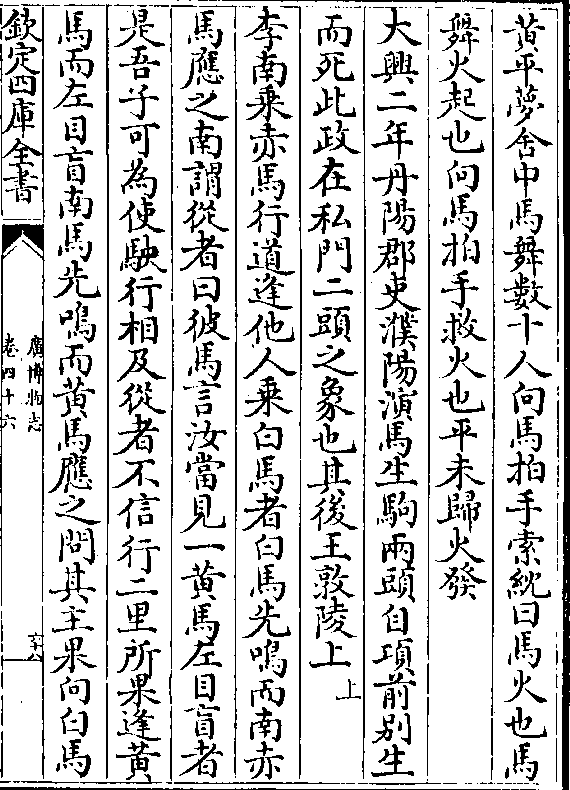 黄平夢舍中馬舞數十人向馬拍手索紞曰馬火也馬
舞火起也向馬拍手救火也平未歸火發
大興二年丹陽郡吏濮陽演馬生駒兩頭自項前别生
而死此政在私門二頭之象也其後王敦陵上
上
李南乗赤馬行道逢他人乗白馬者白馬先鳴而南赤
馬應之南謂從者曰彼馬言汝當見一黄馬左目盲者
是吾子可為使駃行相及從者不信行二里所果逢黄
馬而左目盲南馬先鳴而黄馬應之問其主果向白馬
欽定四庫全書
廣博物志
卷四十六
六十八